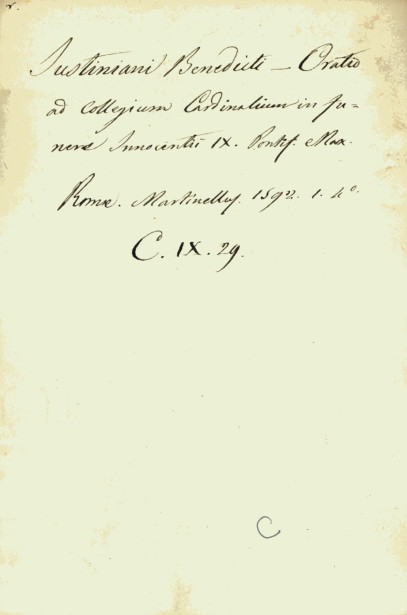 r.
Justiniani Benedicti – Oratio
ad Collegium Cardinalium in fu-
nere Innocentii IX. Pontif. Max.
Romæ. Martinellus. 1592. 1. 4°.
C. IX. 29.
C